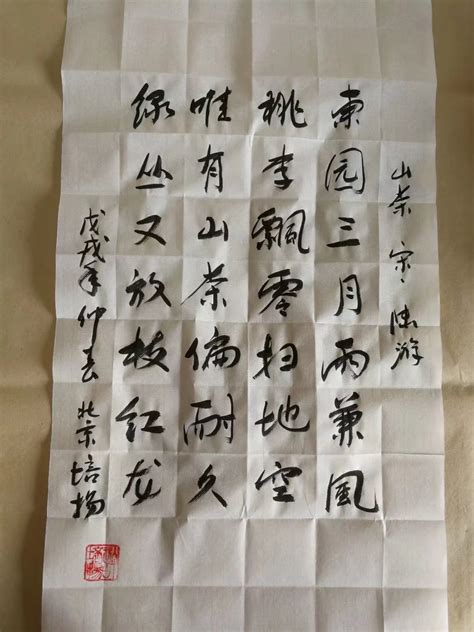 山茶 宋 陆游
東园三月雨兼風
桃李飄零扫地空
唯有山茶偏耐久
绿丛又放枝红
戊戌年仲春 北京培扬